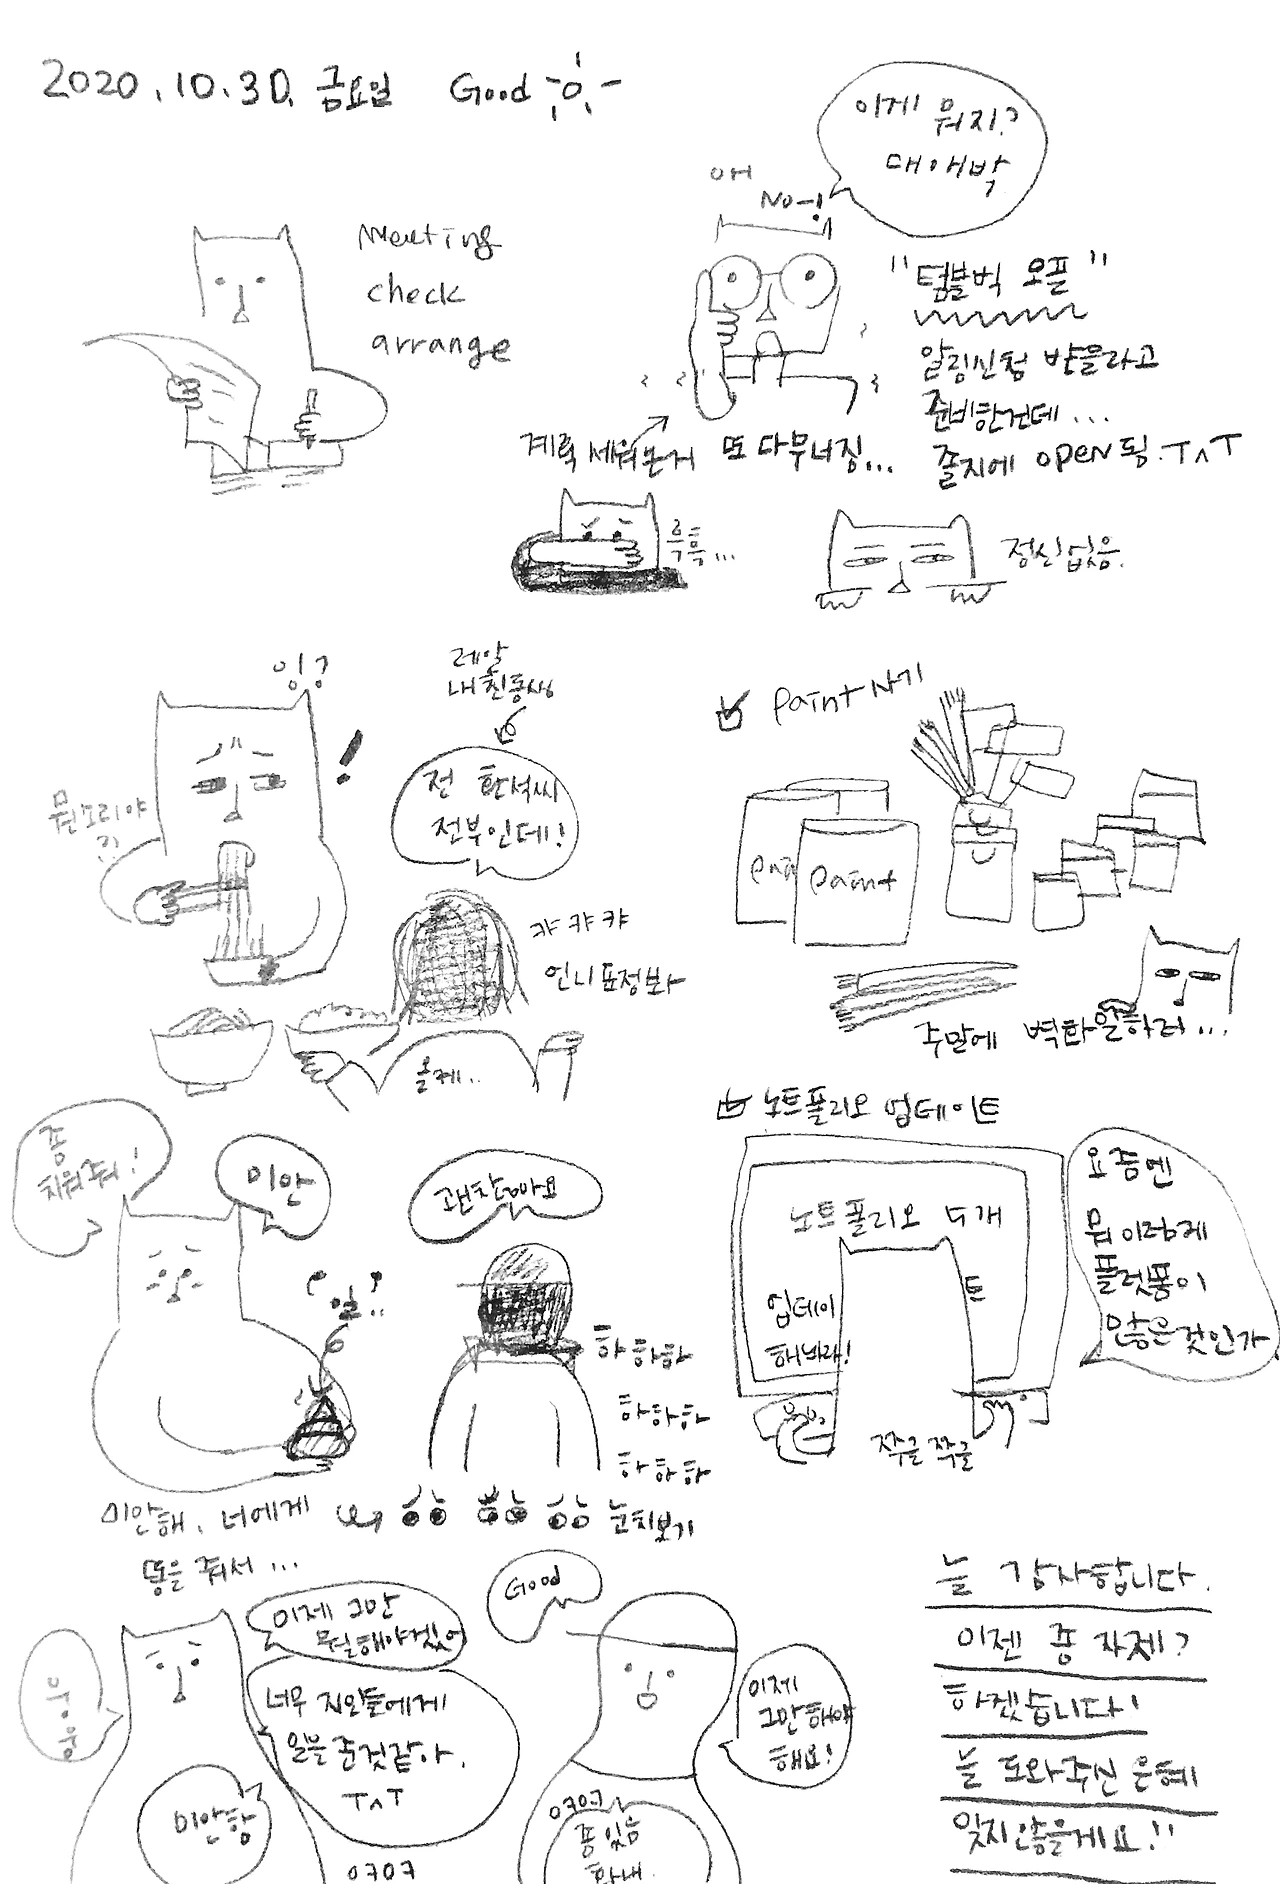 2020.10.30. 금요일 Good
이게 뭐지?
대애박
OH
No-!
Meeting
check
arrange
"텀블벅 오픈"
알림신청 받을라고
준비한건데...
졸지에 open됨.ㅜㅅㅜ
계획 세워논거 또 다무너짐...
흑흑...
정신없음.
잉?
!
뭔소리야
??
레알
내친동생
전 환석씨
전부인데!
캬캬캬
언니표정봐
올케..
paint 사기
pai
paint
주말에 벽화일하러...
좀
치워줘!
미안
괜찮아요
일..
하하하
하하하
하하하
미안해. 너에게
눈치보기
똥을 줘서...
노트폴리오 업데이트
노트폴리오 두개
업데이
트
해봐라!
쭈글쭈글
요즘엔
뭐이렇게
플랫폼이
많은것인가
이제 그만
뭘해야겠어
Good
엉엉
너무 지인들에게
일을 준것같아.
ㅜㅅㅜ
미안항
ㅇㅋㅇㅋ
이제
그만해야
해요!
ㅇㅋㅇㅋ
좀있음
화내.
늘 감사합니다.
이젠 좀 자제?
하겠습니다!
늘 도와주신 은혜
잊지않을게요!!